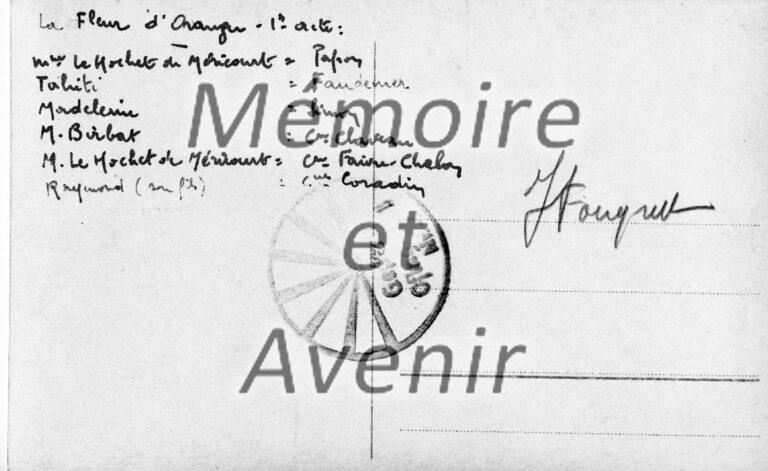 La Fleur d'Oranger - 1er acte:
Mme Le Hochet de Méricourt = Papon
Tahiti = Faudemer
Madeleine = Simon
M. Birbat : Cne Claveau
M. Le Hochet de Méricourt = Cne Faivre-Chalon
Raymond (son fils) : Cne Coradin
J Fouquet
Mémoire
et
Avenir